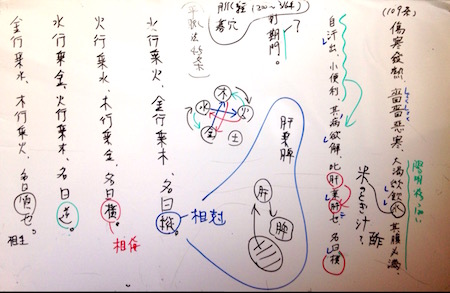 (109条)
傷寒発熱、嗇嗇悪寒、大渇欲飲水、其腹必満、
米のとぎ汁? 酢
自汗出、小便利、其病欲解、此肝乗肺也、名曰横
刺期門。
?
脈経
募穴
肝乗脾
肝
脾
木
火
土
金
水
水行乗火、金行乗木、名曰縦、
相剋
火行乗水、木行乗金、名曰横、
相侮
水行乗金、火行乗木、名曰逆、
金行乗水、木行乗火、名曰順也。
相生